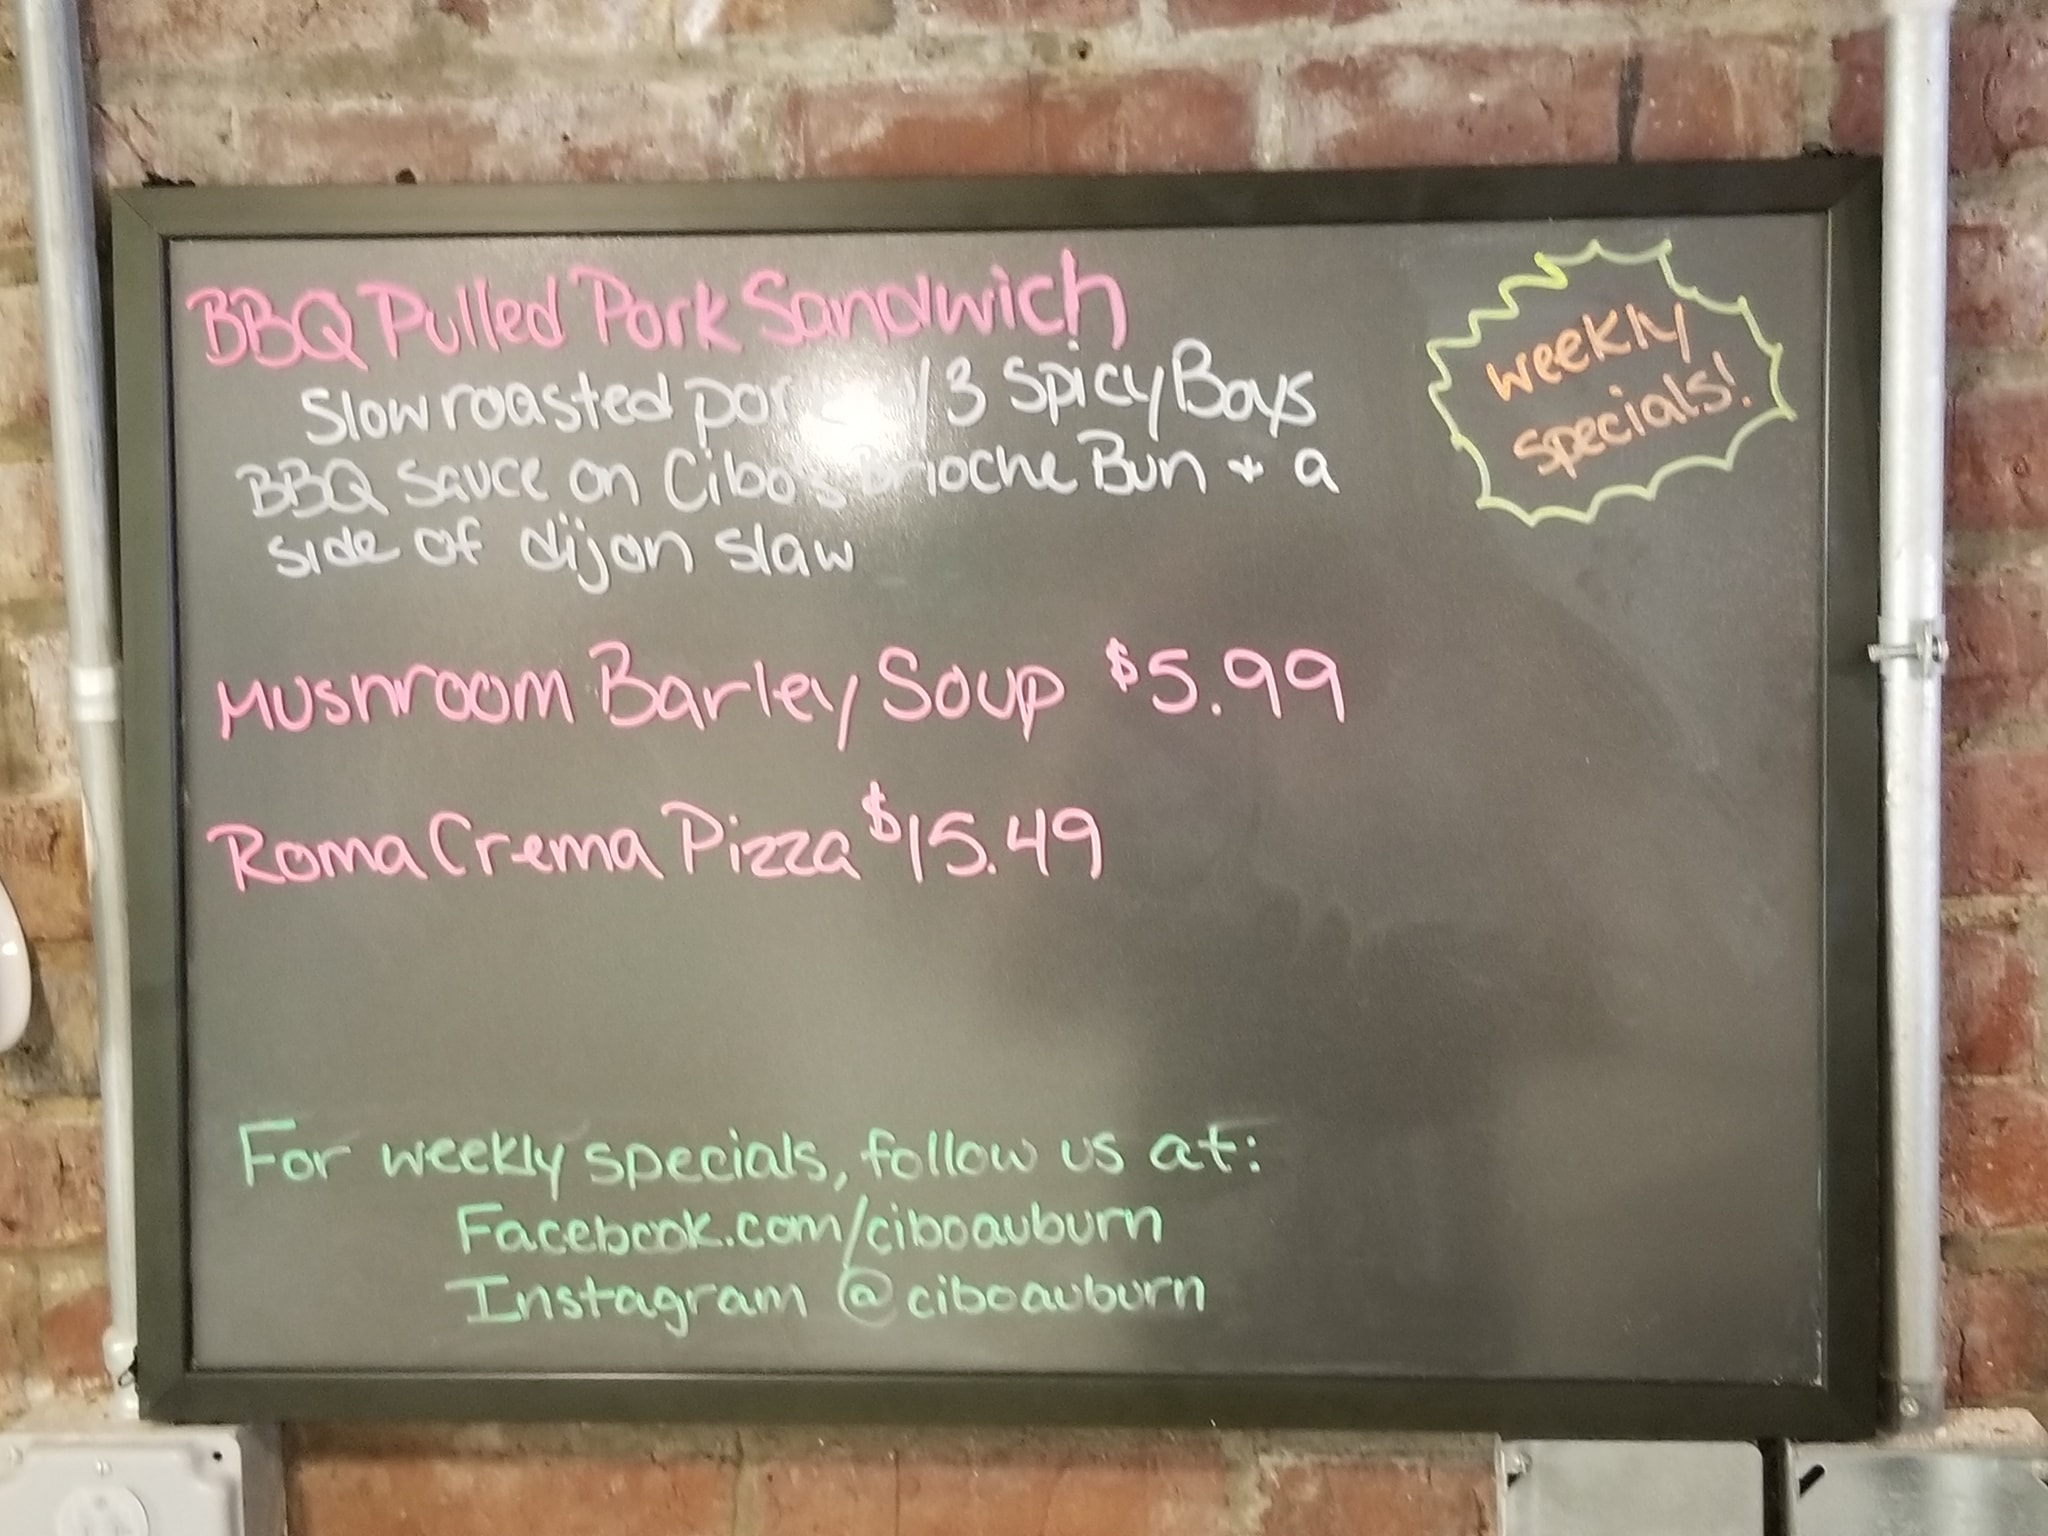 BBQ Pulled Pork Sandwich
Slow roasted pork w/ 3 Spicy Boys
BBQ Sauce on Cibo's Brioche Bun + a
side of dijon slaw
weekly
specials!
Mushroom Barley Soup $5.99
Roma Crema Pizza $15.49
For weekly specials, follow us at:
Facebook.com/ciboauburn
Instagram @ciboauburn